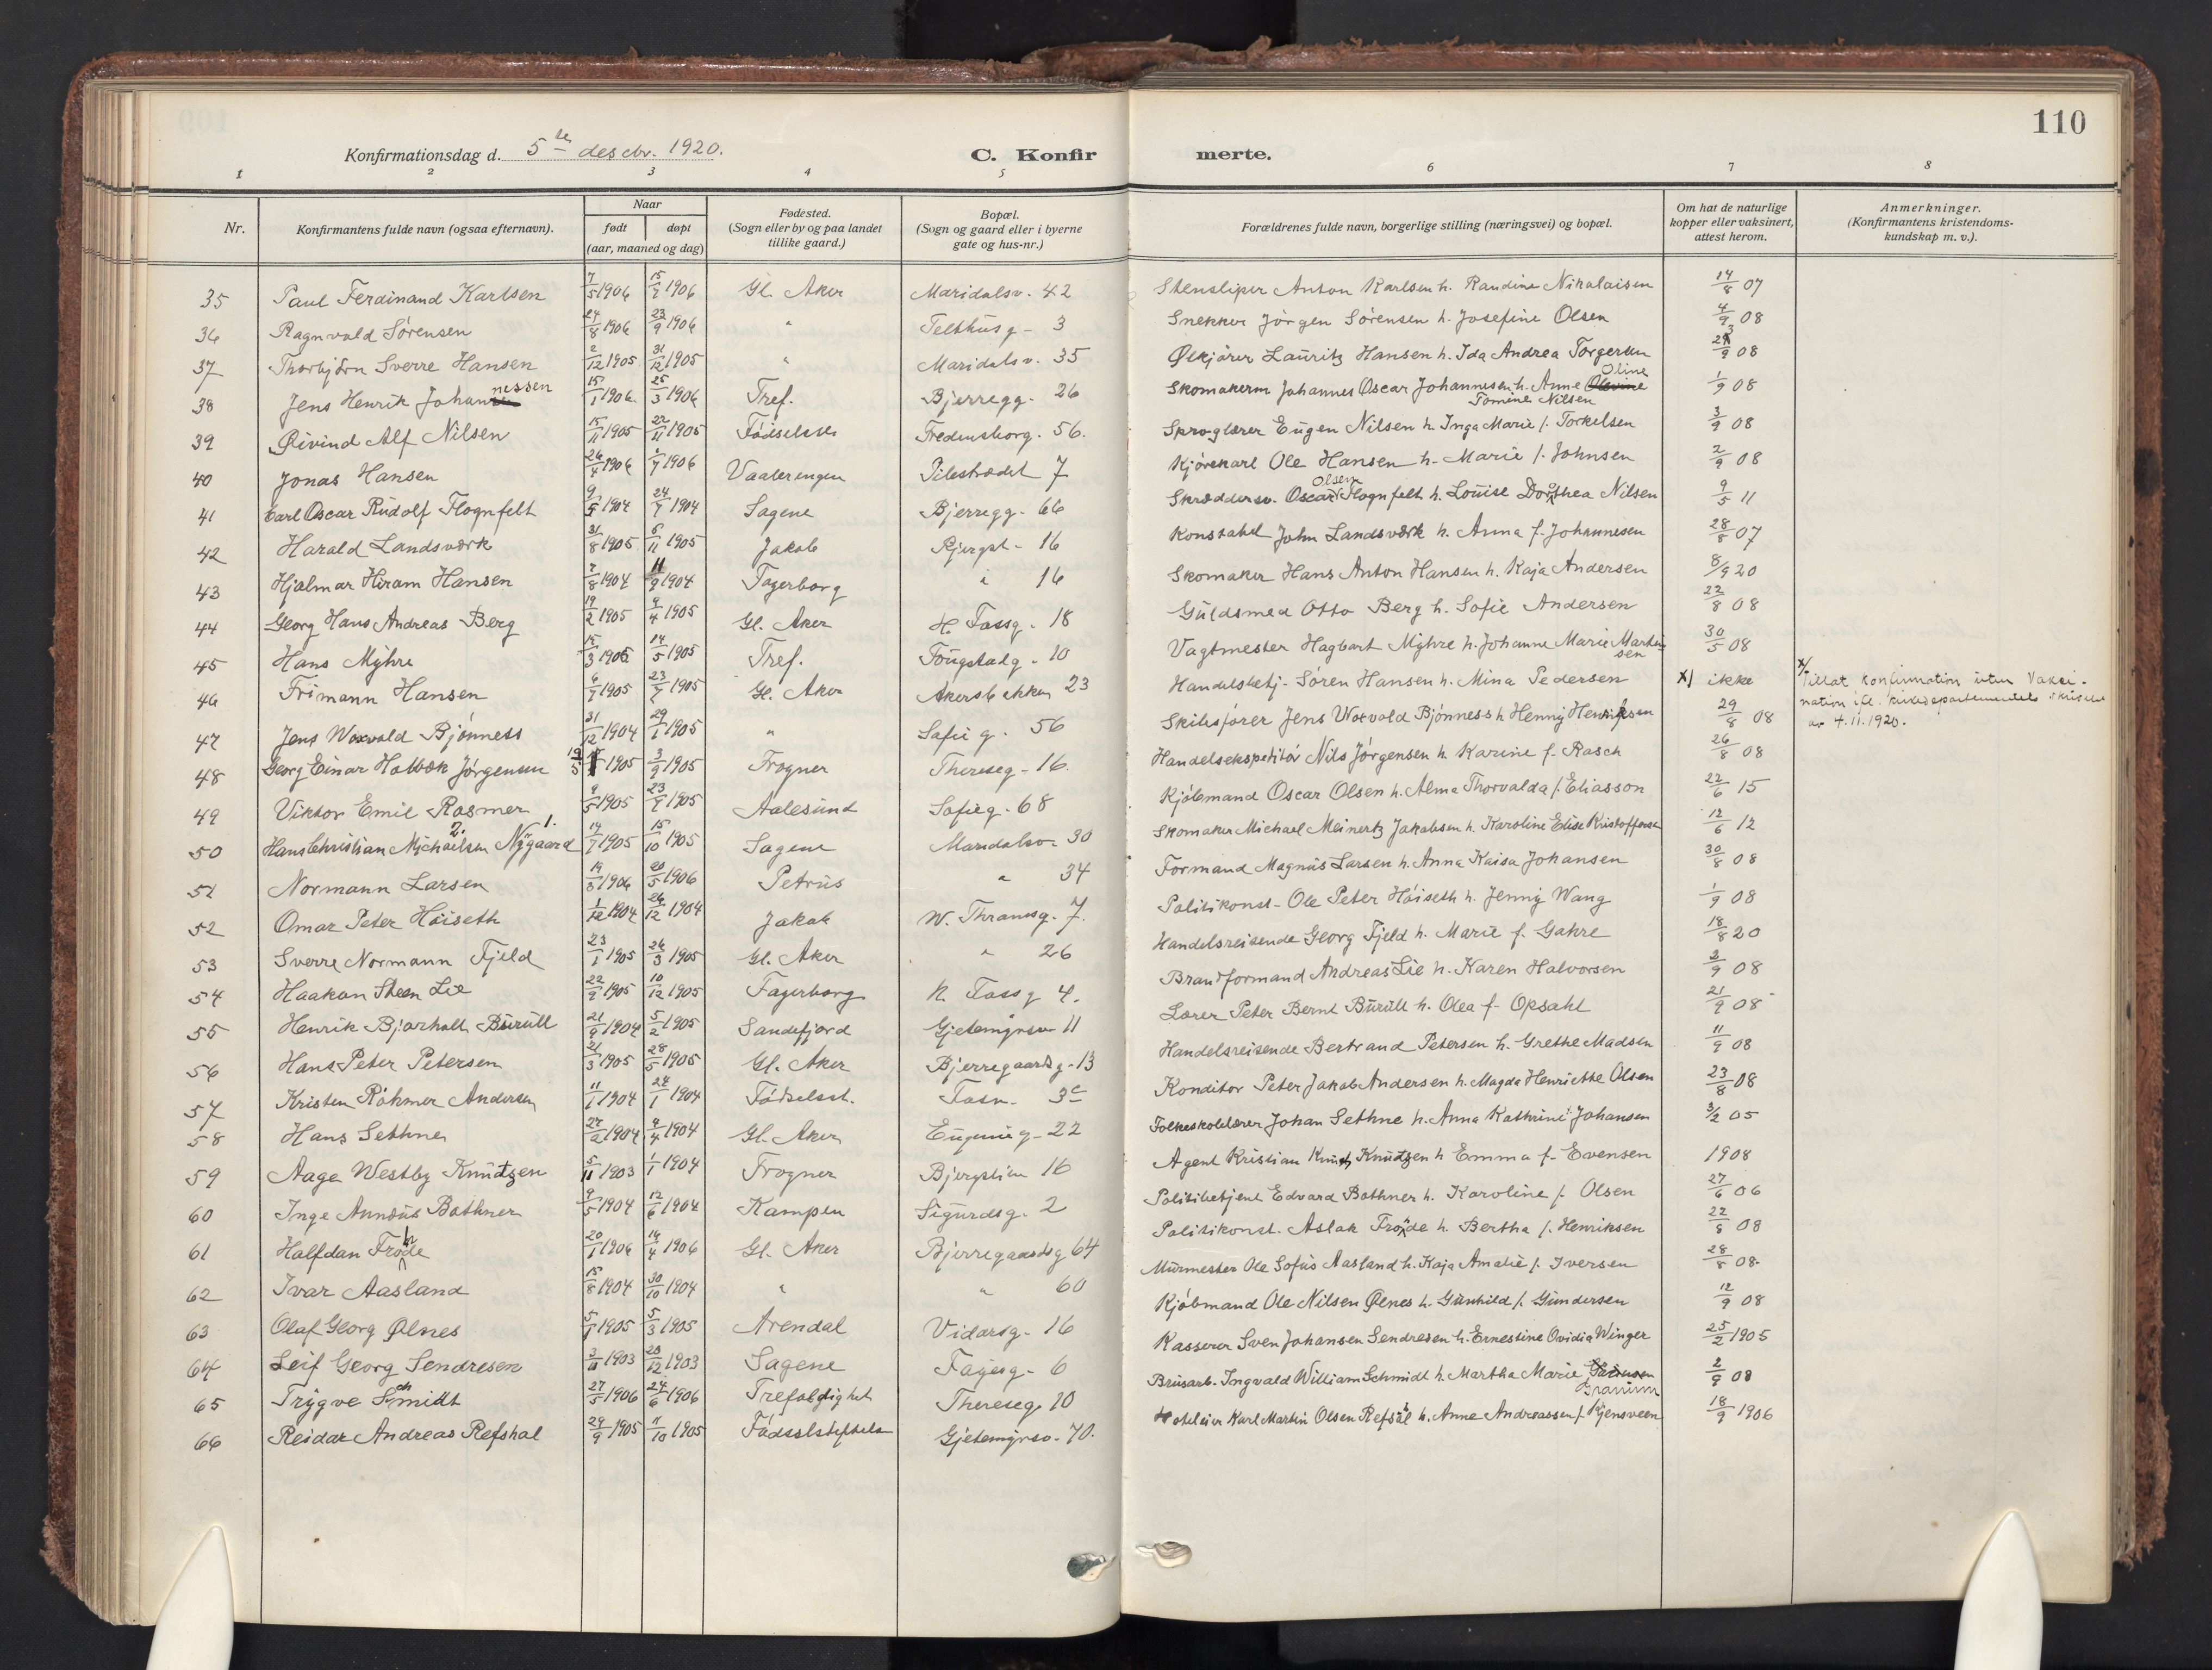 110
Konfirmationsdag d. 5te descbr. 1920.
C. Konfirmerte.
1 2 3 4 5 6 7 8
Nr.
Konfirmantens fulde navn (ogsaa efternavn).
Naar
født døpt
(aar, maaned og dag)
Fødested.
(Sogn eller by og paa landet
tillike gaard.)
Bopæl.
(Sogn og gaard eller i byerne
gate og hus-nr.)
Forældrenes fulde navn, borgerlige stilling (næringsvei) og bopæl.
Om hat de naturlige
kopper eller vaksinert,
attest herom.
Anmerkninger.
(Konfirmantens kristendoms-
kundskap m. v.).
35 Paul Ferdinand Karlsen 7/5 1906 15/7 1906 Gl. Aker Maridalsv. 42 Stensliper Anton Karlsen h. Randine Nikolaisen 14/8 07
36 Ragnvald Sörensen 24/8 1906 23/9 1906 " Telthusg- 3 Snekker Jörgen Sörensen h. Josefine Olsen 4/9 08
37 Thorbjörn Sverre Hansen 2/12 1905 31/12 1905 " Maridalsv. 35 Ølkjörer Lauritz Hansen h. Ida Andrea Torgersen /9 08
38 Jens Henrik Johannessen 15/1 1906 25/3 1906 Tref. Bjerregg. 26 Skomakerm Johannes Oscar Johannesen h. Anne Oline Tomine Nilsen 1/9 08
39 Øivind Alf Nilsen 15/11 1905 22/11 1905 Födselsst. Fredensborg. 56. Sproglærer Eugen Nilsen h. Inga Marie f. Torkelsen 3/9 08
40 Jonas Hansen 26/4 1906 1/7 1906 Vaalerengen Pilestrædet 7 Kjörekarl Ole Hansen h. Marie f. Johnsen 2/9 08
41 Carl Oscar Rudolf Flognfelt 9/5 1904 24/7 1904 Sagene Bjerregg- 66 Skræddersv. Oscar Olsen Flognfelt h. Louise Dorothea Nilsen 9/5 11
42 Harald Landsværk 31/8 1905 5/11 1905 Jakob Bjergst- 16 Konstabel John Landsværk h. Anna f. Johannesen 28/8 07
43 Hjalmar Hiram Hansen 7/8 1904 11/9 1904 Fagerborg " 16 Skomaker Hans Anton Hansen h. Kaja Andersen 8/9 20
44 Georg Hans Andreas Berg 19/2 1905 9/4 1905 Gl. Aker H. Tassg- 18 Guldsmed Otto Berg h. Sofie Andersen 22/8 08
45 Hans Myhre 15/3 1905 14/5 1905 Tref. Tougstadg- 10 Vagtmester Hagbart Myhre h. Johanne Marie Martinsen 30/5 08
46 Frimann Hansen 6/7 1905 23/7 1905 Gl. Aker Akersbakken 23 Handelsbetj- Sören Hansen h. Mina Pedersen x) ikke
x/ Tillat konfirmation uten Vaksi-
nation ifl. kirkedepartementets skrivelse
av 4.11.1920.
47 Jens Woxvold Bjönness 31/12 1904 29/1 1905 " Sofieg. 56 Skibsförer Jens Woxvold Bjönness h Henny Henriksen 29/8 08
48 Georg Einar Holbæk Jörgensen 19/5 1905 3/9 1905 Frogner Thereseg- 16. Handelsekspeditör Nils Jörgensen h. Karine f. Rasch 26/8 08
49 Viktor Emil Rasmer 9/5 1905 23/7 1905 Aalesund Sofieg- 68 Kjöbmand Oscar Olsen h. Alma Thorvalda f. Eliasson 22/6 15
50 Hans Christian Michaelsen 2. Nygaard 1. 14/7 1905 15/10 1905 Sagene Maridalsv- 30 Skomaker Michael Meinertz Jakobsen h. Karoline Elise Kristoffersen 12/6 12
51 Normann Larsen 19/3 1906 20/5 1906 Petrus " 34 Formand Magnus Larsen h. Anna Kaisa Johansen 30/8 08
52 Omar Peter Höiseth 1/12 1904 26/12 1904 Jakob W. Thranesg. 7. Politikonst- Ole Peter Höiseth h. Jenny Wang 1/9 08
53 Sverre Normann Fjeld 23/1 1905 26/3 1905 Gl. Aker " 26 Handelsreisende Georg Fjeld h. Marie f. Gahre 18/8 20
54 Haakon Steen Lie 22/9 1905 10/12 1905 Fagerborg N. Tassg 4. Brandformand Andreas Lie h. Karen Halvorsen 2/9 08
55 Henrik Bjarholt Burull 21/9 1904 5/2 1905 Sandefjord Gjetemyrsv 11 Lærer Peter Bernt Burull h. Olea f- Opsahl 21/9 08
56 Hans Peter Petersen 21/3 1905 28/5 1905 Gl. Aker Bjerregaardsg-13 Handelsreisende Bertrand Petersen h. Grethe Madsen 11/9 08
57 Kristen Röhmer Andersen 11/1 1904 24/1 1904 Födselsst. Tasn- 3c Konditor Peter Jakob Andersen h. Magda Henriette Olsen 23/8 08
58 Hans Sethne 27/2 1904 4/4 1904 Gl. Aker Eugenieg- 22 Folkeskolelærer Johan Sethne h. Anna Kathrine Johansen 3/2 05
59 Aage Westby Knudtzen 5/11 1903 1/1 1904 Frogner Bjergstien 16 Agent Kristian Knudtzen h Emma f- Evensen 1908
60 Inge Anndus Bothner 9/5 1904 12/6 1904 Kampen Sigurdsg. 2 Politibetjent Edvard Bothner h. Karoline f. Olsen 27/6 06
61 Halfdan Frode 20/1 1906 14/4 1906 Gl. Aker Bjerregaardsg 64 Politikonst. Aslak Froide h. Bertha f. Henriksen 22/8 08
62 Ivar Aasland 15/8 1904 30/10 1904 " " 60 Murmester Ole Sofus Aasland h. Kaja Amalie f. Iversen 28/8 08.
63 Olaf Georg Ølnes 5/1 1905 5/3 1905 Arendal Vidarsg- 16 Kjöbmand Ole Nilsen Ølnes h. Gunhild f. Gundersen 12/9 08
64 Leif Georg Sendresen 3/11 1903 20/12 1903 Sagene Fayesg- 6 Kasserer Sven Johansen Sendresen h. Ernestine Ovidia Winger 25/2 1905
65 Trygve Schmidt 27/5 1906 24/6 1906 Trefoldighet Thereseg 10 Brusarb. Ingvald William Schmidt h. Martha Marie Granum 2/9 08
66 Reidar Andreas Refshal 29/9 1905 11/10 1905 Födselsstiftelse Gjetemyrsv- 70. Hoteleier Karl Martin Olsen Refsahl h. Anne Andreassen f. Kjensveen 18/9 1906